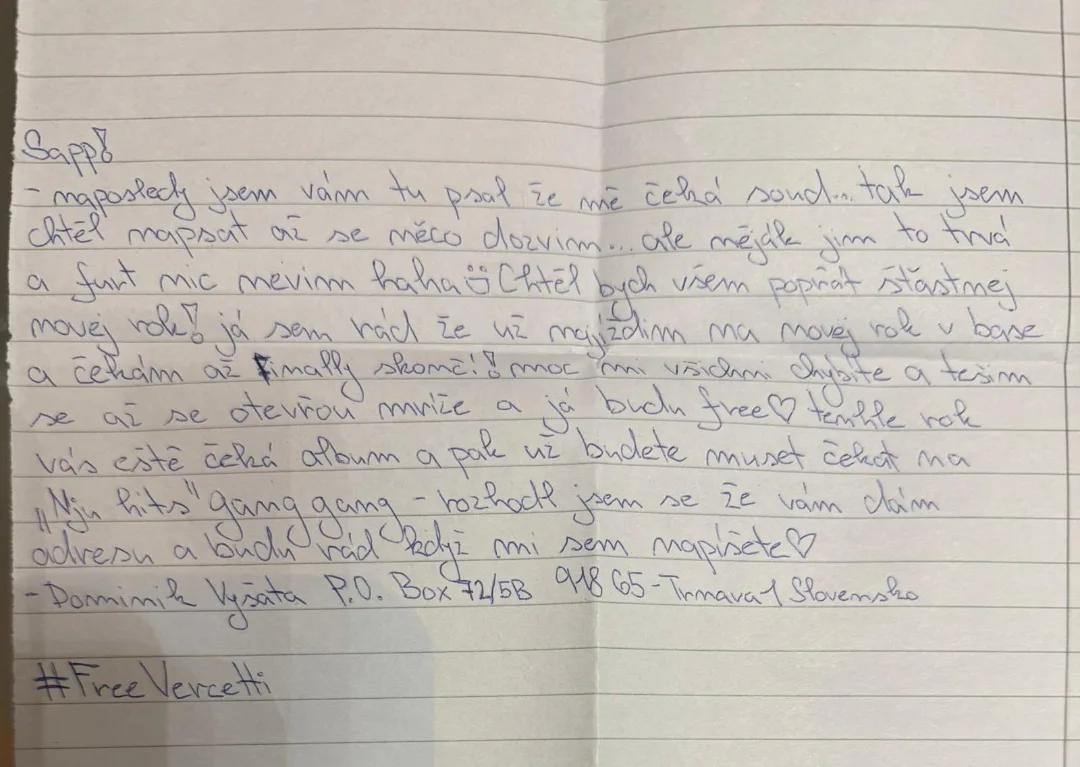 Sapp!
- naposledy jsem vám tu psal že mě čeká soud... tak jsem
chtěl napsat až se něco dozvim... ale něják jim to trvá
a furt nic nevim haha Chtěl bych všem popřát štástnej
novej rok! já sem rád že už najíždim na novej rok v base
a čekám až finally skončí! moc mi všichni chybíte a tešim
se až se otevřou mříže a já budu free♡ tenhle rok
vás eště čeká album a pak už budete muset čekat na
„Njn hits" gang gang - rozhodl jsem se že vám dám
adresu a budu rád když mi sem napíšete♡
- Dominik Vyšata P.O. Box 72/5B 918 65 - Trnava 1 Slovensko
#FreeVercetti